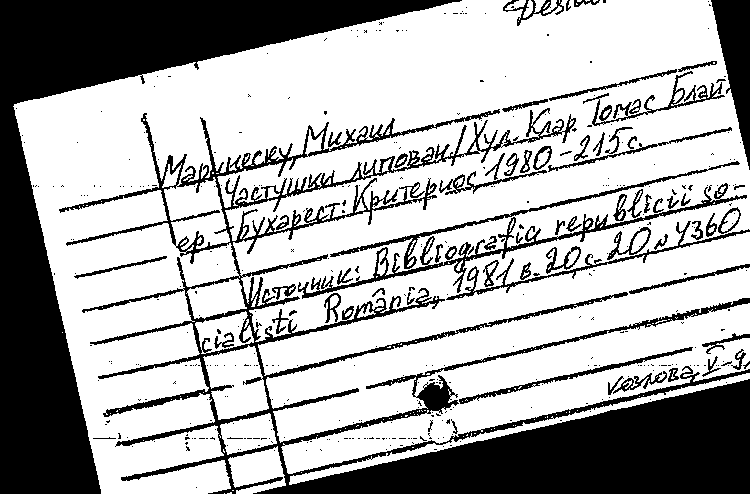 Маринеску, Михаил
Частушки липован. / Худ. Клар Томас Блай-
ер. – Бухарест: Критерион, 1980 – 215 с.
Источник: Bibliografia republicii so-
cialisti România, 1981, в. 20, с. 20, № 4360
Козлова, V-9